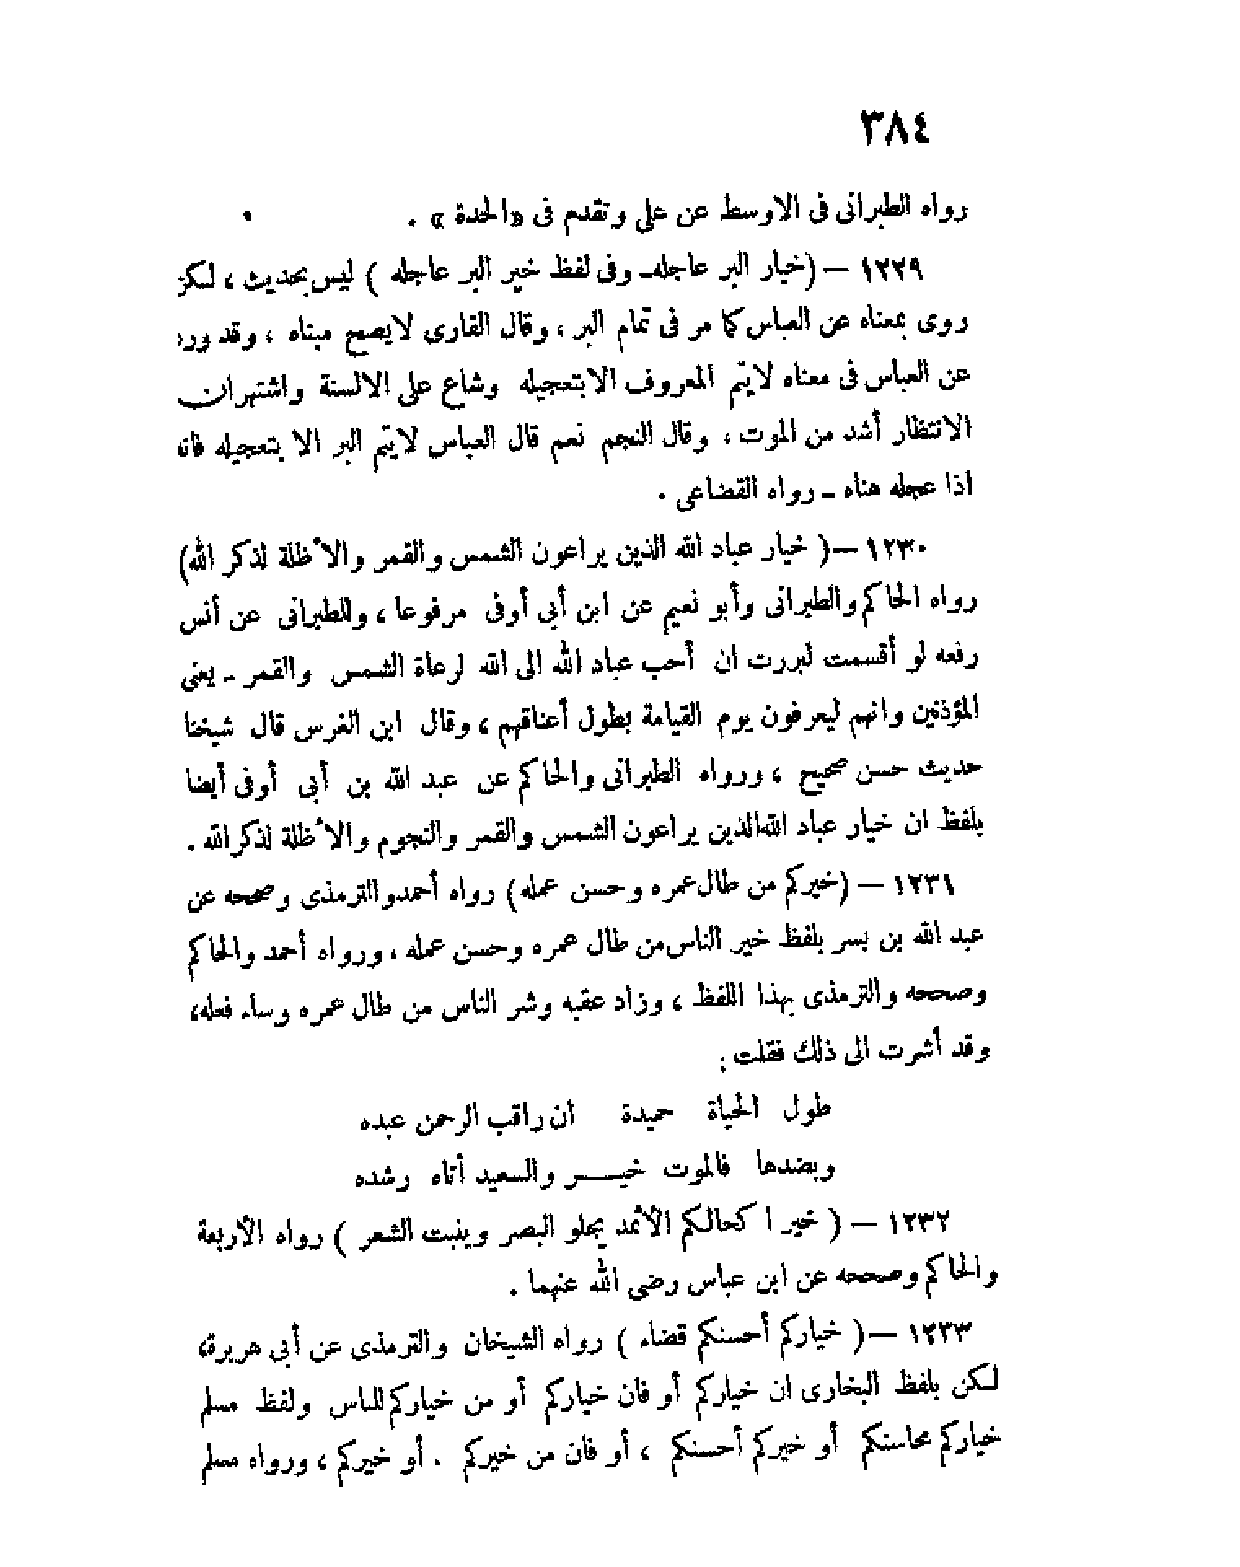 ٣٨٤
رواه الطبرانى فى الاوسط عن على وتقدم فى «الحدة» .
١٢٢٩ – (خيار البر عاجله - وفى لفظ خير البر عاجله ) ليس بحديث ، لكن
روى بمعناه عن العباس كما مر فى تمام البر ، وقال القارى لايصح مبناه ، وقد ورد
عن العباس فى معناه لايتم المعروف الابتعجيله وشاع على الالسنة واشتهر ان
الانتظار أشد من الموت ، وقال النجم نعم قال العباس لايتم البر الا بتعجيله فانه
اذا عجله هناه - رواه القضاعى .
١٢٣٠ –( خيار عباد الله الذين يراعون الشمس والقمر والأظلة لذكر الله)
رواه الحاكم والطبرانى وأبو نعيم عن ابن أبي أوفى مرفوعا ، وللطبرانى عن أنس
رفعه لو أقسمت لبررت ان أحب عباد الله الى الله لرعاة الشمس والقمر - يعنى
المؤذنين وانهم ليعرفون يوم القيامة بطول أعناقهم ، وقال ابن الغرس قال شيخنا
حديث حسن صحيح ، ورواه الطبرانى والحاكم عن عبد الله بن أبى أوفى أيضا
بلفظ ان خيار عباد الله الذين يراعون الشمس والقمر والنجوم والأظلة لذكر الله .
١٢٣١ – (خيركم من طال عمره وحسن عمله) رواه أحمد والترمذى وصححه عن
عبد الله بن بسر بلفظ خير الناس من طال عمره وحسن عمله ، ورواه أحمد والحاكم
وصححه والترمذى بهذا اللفظ ، وزاد عقبه وشر الناس من طال عمره وساء فعله،
وقد أشرت الى ذلك فقلت :
طول الحياة حميدة ان راقب الرحمن عبده
وبضدها فالموت خيـــر والسعيد أتاه رشده
١٢٣٢ – ( خير ا كحالكم الاثمد يجلو البصر وينبت الشعر ) رواه الأربعة
والحاكم وصححه عن ابن عباس رضى الله عنهما .
١٢٣٣ –( خياركم أحسنكم قضاء ) رواه الشيخان والترمذى عن أبى هريرة،
لكن بلفظ البخارى ان خياركم أو فان خياركم أو من خياركم للناس ولفظ مسلم
خياركم محاسنكم أو خيركم أحسنكم ، أو فان من خيركم . أو خيركم ، ورواه مسلم